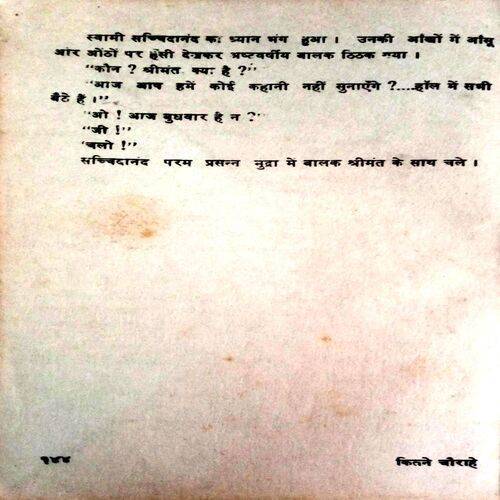 स्वामी सच्चिदानंद का ध्यान भंग हुआ । उनकी आँखों में आँसू
और ओंठों पर हँसी देखकर अष्टवर्षीय बालक ठिठक गया ।
“कौन ? श्रीमंत क्या है ?”
“आज आप हमें कोई कहानी नहीं सुनाएँगे ?....हॉल में सभी
बैठे हैं ।”
“ओ ! आज बुधवार है न ?”
“जी !”
‘चलो !”
सच्चिदानंद परम प्रसन्न मुद्रा में बालक श्रीमंत के साथ चले ।
१४४
कितने चौराहे